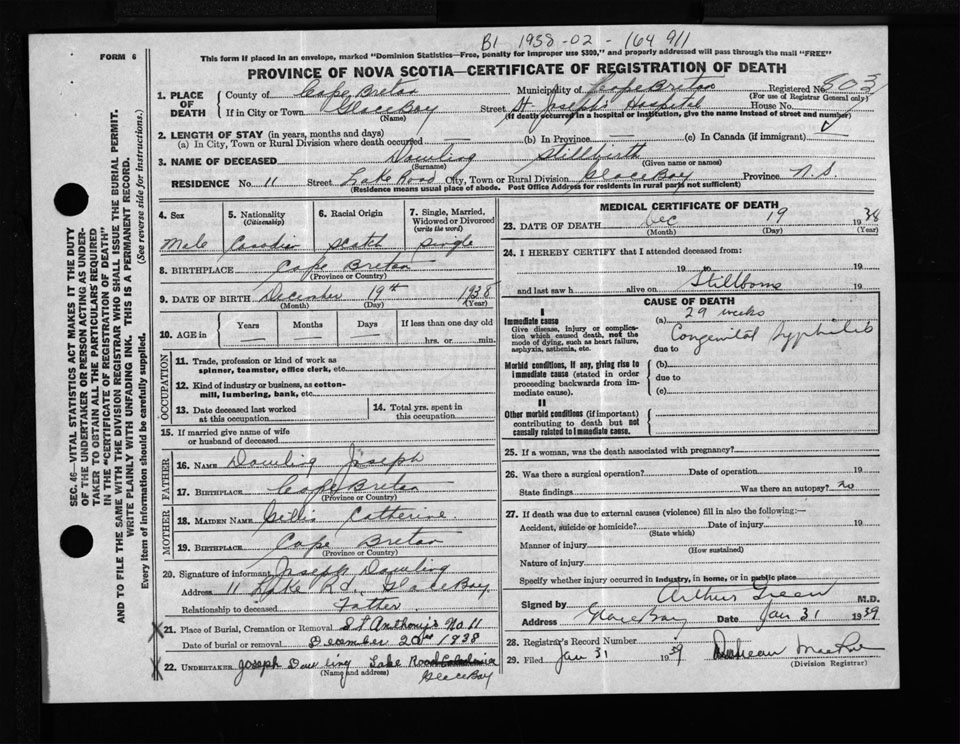 B1 1938-02-164911
FORM 6
This form if placed in an envelope, marked "Dominion Statistics—Free, penalty for improper use $300," and properly addressed will pass through the mail "FREE"
PROVINCE OF NOVA SCOTIA—CERTIFICATE OF REGISTRATION OF DEATH
1. PLACE OF DEATH
County of Cape Breton Municipality of Cape Breton Registered No. 803
(For use of Registrar General only)
If in City or Town Glace Bay Street St Joseph's Hospital House No.
(Name) (If death occurred in a hospital or institution, give the name instead of street and number)
2. LENGTH OF STAY (in years, months and days)
(a) In City, Town or Rural Division where death occurred — (b) In Province — (c) In Canada (if immigrant) ✓
3. NAME OF DECEASED Dowling Stillbirth
(Surname) (Given name or names)
RESIDENCE No 11 Street Lake Road City, Town or Rural Division Glace Bay Province N.S.
(Residence means usual place of abode. Post Office Address for residents in rural parts not sufficient)
4. Sex Male
5. Nationality (Citizenship) Canadian
6. Racial Origin Scotch
7. Single, Married, Widowed or Divorced (write the word) Single
8. BIRTHPLACE Cape Breton
(Province or Country)
9. DATE OF BIRTH December 19th 1938
(Month) (Day) (Year)
10. AGE in Years — Months — Days — If less than one day
hrs. or min.
OCCUPATION
11. Trade, profession or kind of work as spinner, teamster, office clerk, etc.
12. Kind of industry or business, as cotton-mill, lumbering, bank, etc.
13. Date deceased last worked at this occupation
14. Total yrs. spent in this occupation
15. If married give name of wife or husband of deceased
FATHER
16. NAME Dowling Joseph
17. BIRTHPLACE Cape Breton
(Province or Country)
MOTHER
18. MAIDEN NAME Gillis Catherine
19. BIRTHPLACE Cape Breton
(Province or Country)
20. Signature of informant Joseph Dowling
Address 11 Lake Rd. Glace Bay
Relationship to deceased Father
21. Place of Burial, Cremation or Removal St Anthony's No. 11
Date of burial or removal December 20th 1938
22. UNDERTAKER Joseph Dowling Lake Road
Glace Bay
MEDICAL CERTIFICATE OF DEATH
23. DATE OF DEATH Dec 19 1938
(Month) (Day) (Year)
24. I HEREBY CERTIFY that I attended deceased from:
19 to 19
and last saw h alive on Stillborn 19
CAUSE OF DEATH
I
Immediate cause
Give disease, injury or complication which caused death, not the mode of dying, such as heart failure, asphyxia, asthenia, etc.
(a) 29 weeks
Congenital Syphilis
due to
Morbid conditions, if any, giving rise to immediate cause (stated in order proceeding backwards from immediate cause).
(b)
due to
(c)
II
Other morbid conditions (if important) contributing to death but not causally related to immediate cause.
25. If a woman, was the death associated with pregnancy?
26. Was there a surgical operation? Date of operation 19
State findings Was there an autopsy? no
27. If death was due to external causes (violence) fill in also the following:—
Accident, suicide or homicide? Date of injury 19
(State which)
Manner of injury
(How sustained)
Nature of injury
Specify whether injury occurred in industry, in home, or in public place
Signed by Arthur Green M.D.
Address Glace Bay Date Jan 31 1939
28. Registrar's Record Number
29. Filed Jan 31 1939 Duncan MacRae
(Division Registrar)
SEC. 46—VITAL STATISTICS ACT MAKES IT THE DUTY
OF THE UNDERTAKER OR PERSON ACTING AS UNDER-
TAKER TO OBTAIN ALL THE PARTICULARS REQUIRED
IN THE "CERTIFICATE OF REGISTRATION OF DEATH"
AND TO FILE THE SAME WITH THE DIVISION REGISTRAR WHO SHALL ISSUE THE BURIAL PERMIT.
WRITE PLAINLY WITH UNFADING INK. THIS IS A PERMANENT RECORD.
Every item of information should be carefully supplied. (See reverse side for instructions.)